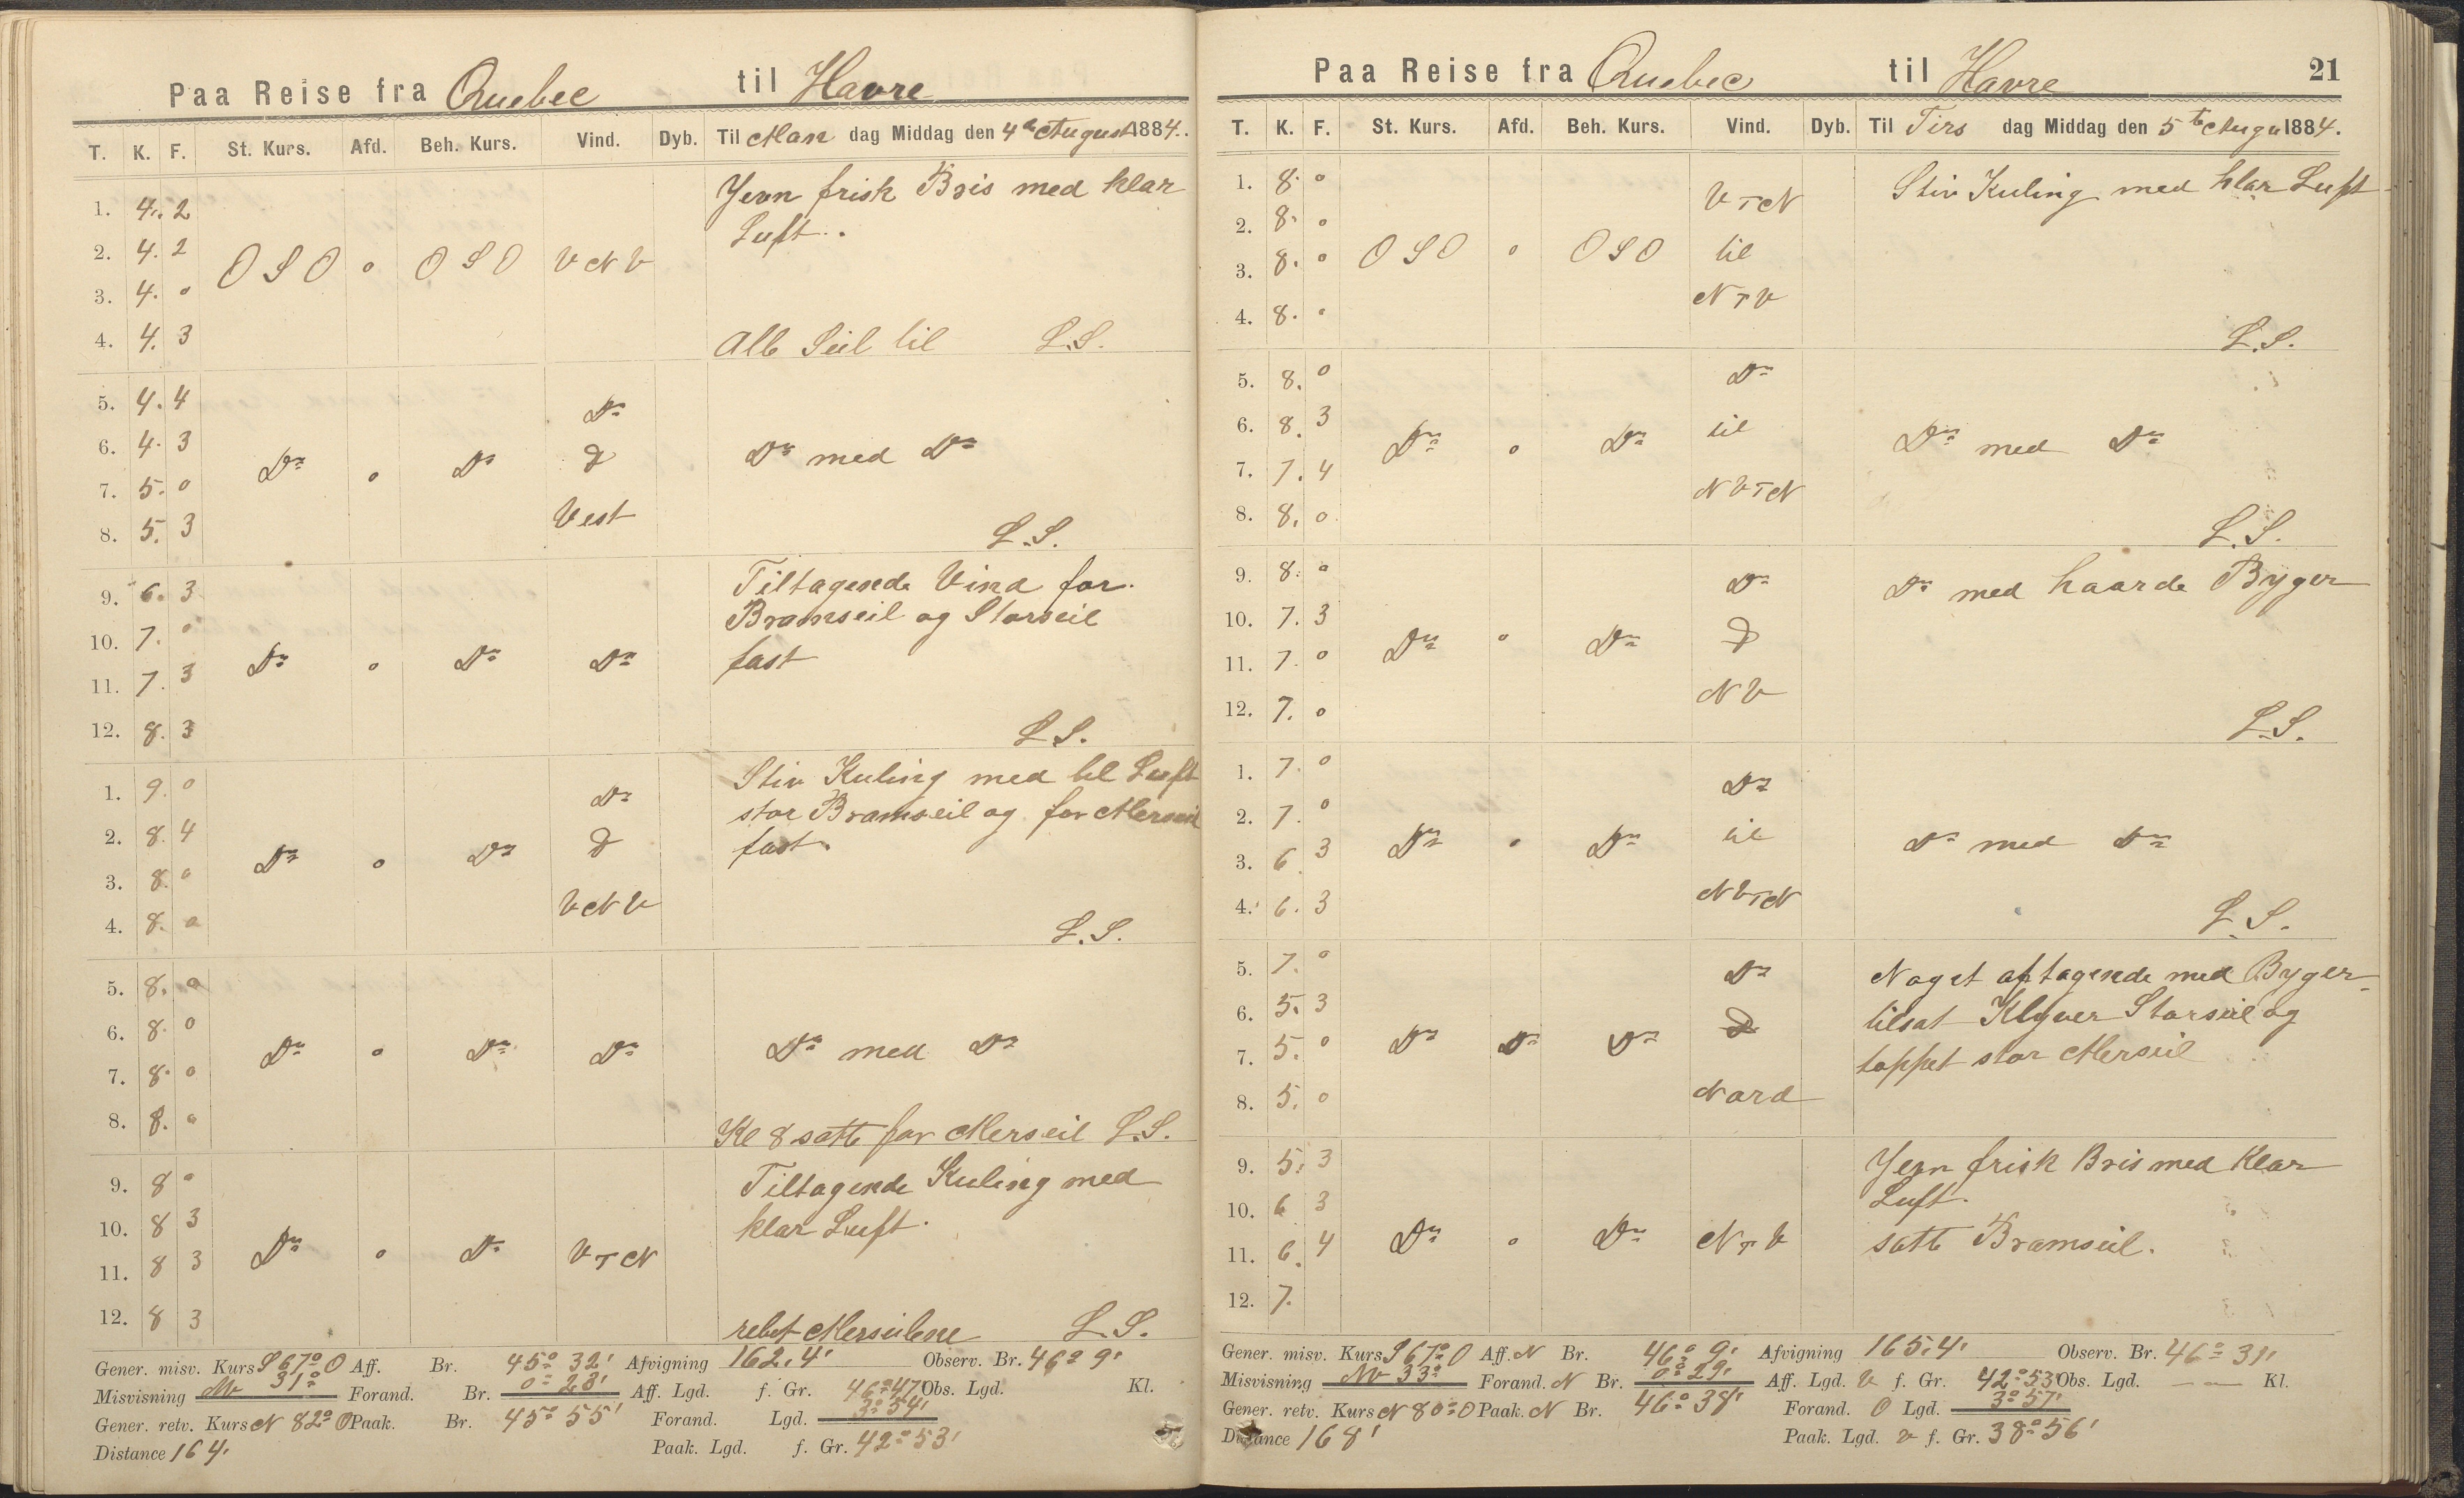 Paa Reise fra Quebec til Havre
T. K. F. St. Kurs. Afd. Beh. Kurs. Vind. Dyb. Til Man dag Middag den 4de August 1884.
Jevn frisk Bris med klar
1. 4. 2
Luft.
2. 4. 2 OSO o OSO VNV
3. 4. o
4. 4. 3 Alle Seil til L.S.
5. 4. 4 Do
6. 4. 3 Do o Do & Do med Do
7. 5. o
Vest
8. 5. 3 L.S.
Tiltagende Vind for
9. 6. 3
Bramseil og Storseil
10. 7. o
Do o Do Do fast
11. 7. 3
12. 8. 3 L.S.
Stiv Kuling med Luft
1. 9. o Do
stor Bramseil og for Merseil
2. 8. 4 Do o Do & fast
3. 8. o
VNV
4. 8. o L.S.
5. 8. o
6. 8. o
Do o Do Do Do med Do
7. 8. o
8. 8. o
Kl 8 satte for Merseil L.S.
Tiltagende Kuling med
9. 8 o
klar Luft.
10. 8 3
Do o Do VTN
11. 8 3
12. 8 3
rebet Merseilene L.S.
Gener. misv. Kurs S 67° O Aff. Br. 45° 32' Afvigning 162.4' Observ. Br. 46° 9'
Misvisning NV 31° Forand. Br. 0° 23' Aff. Lgd. f. Gr. 46° 47' Obs. Lgd. Kl.
Gener. retv. Kurs N 82° O Paak. Br. 45° 55' Forand. Lgd. 3° 54'
Distance 164' Paak. Lgd. f. Gr. 42° 53'
Paa Reise fra Quebec til Havre 21
T. K. F. St. Kurs. Afd. Beh. Kurs. Vind. Dyb. Til Tirs dag Middag den 5te Augu 1884.
1. 8. o VTN Stiv Kuling med klar Luft
2. 8. o
3. 8. o OSO o OSO til
NTV
4. 8. o
L.S.
5. 8. o Do
6. 8. 3 Do o Do til Do med Do
7. 7. 4
NVTN
8. 8. o
L.S.
9. 8. o Do Do med haarde Byger
10. 7. 3
Do o Do &
11. 7. o
NV
12. 7. o
L.S.
1. 7. o Do
2. 7. o
Do o Do til Do med Do
3. 6 3
4. 6. 3 NVTN
L.S.
5. 7. o Do Noget aftagende med Byger
6. 5. 3 & tilsat Klyver Storseil og
7. 5. o Do Do Do toppet stor Merseil
8. 5. o Nord
9. 5. 3 Jevn frisk Bris med Klar
Luft.
10. 6 3
11. 6. 4 Do o Do NTV satte Bramseil.
12. 7.
Gener. misv. Kurs S 67° O Aff. N Br. 46° 9' Afvigning 165.4' Observ. Br. 46° 31'
Misvisning NV 33° Forand. N Br. 0° 29' Aff. Lgd. V f. Gr. 42° 53' Obs. Lgd. — — Kl.
Gener. retv. Kurs N 80° O Paak. N Br. 46° 38' Forand. O Lgd. 3° 57'
Distance 168' Paak. Lgd. V f. Gr. 38° 56'